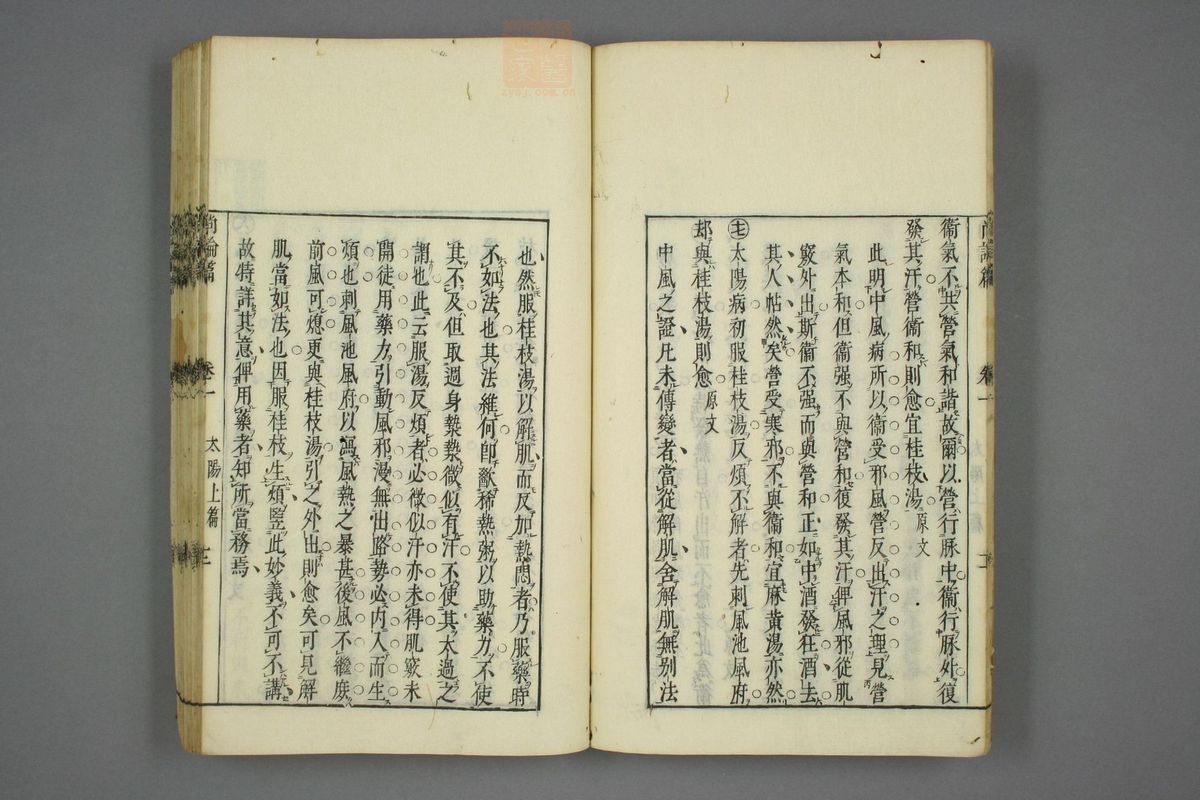 衞氣不共營氣和諧故爾以營行脉中衞行脉外復
發其汗營衞和則愈宜桂枝湯原文
此明中風病所以衞受邪風營反出汗之理見營
氣本和但衞强不與營和復發其汗俾風邪從肌
竅外出斯衞不强而與營和正如中酒發狂酒去
其人帖然矣營受寒邪不與衞和宜麻黄湯亦然
十七太陽病初服桂枝湯反煩不解者先刺風池風府
却與桂枝湯則愈原文
中風之證凡未傳變者當從解肌舍解肌無别法
也然服桂枝湯以解肌而反加熱悶者乃服藥時
不如法也其法維何卽歠稀熱粥以助藥力不使
其不及但取週身漐漐微似有汗不使其太過之
謂也此云服湯反煩者必微似汗亦未得肌竅未
開徒用藥力引動風邪漫無出路勢必内入而生
煩也刺風池風府以瀉風熱之暴甚後風不繼庶
前風可熄更與桂枝湯引之外出則愈矣可見解
肌當如法也因服桂枝生煩豎此妙義不可不講
故特詳其意俾用藥者知所當務焉
尚論篇 卷一 太陽上篇
zysj.com.cn